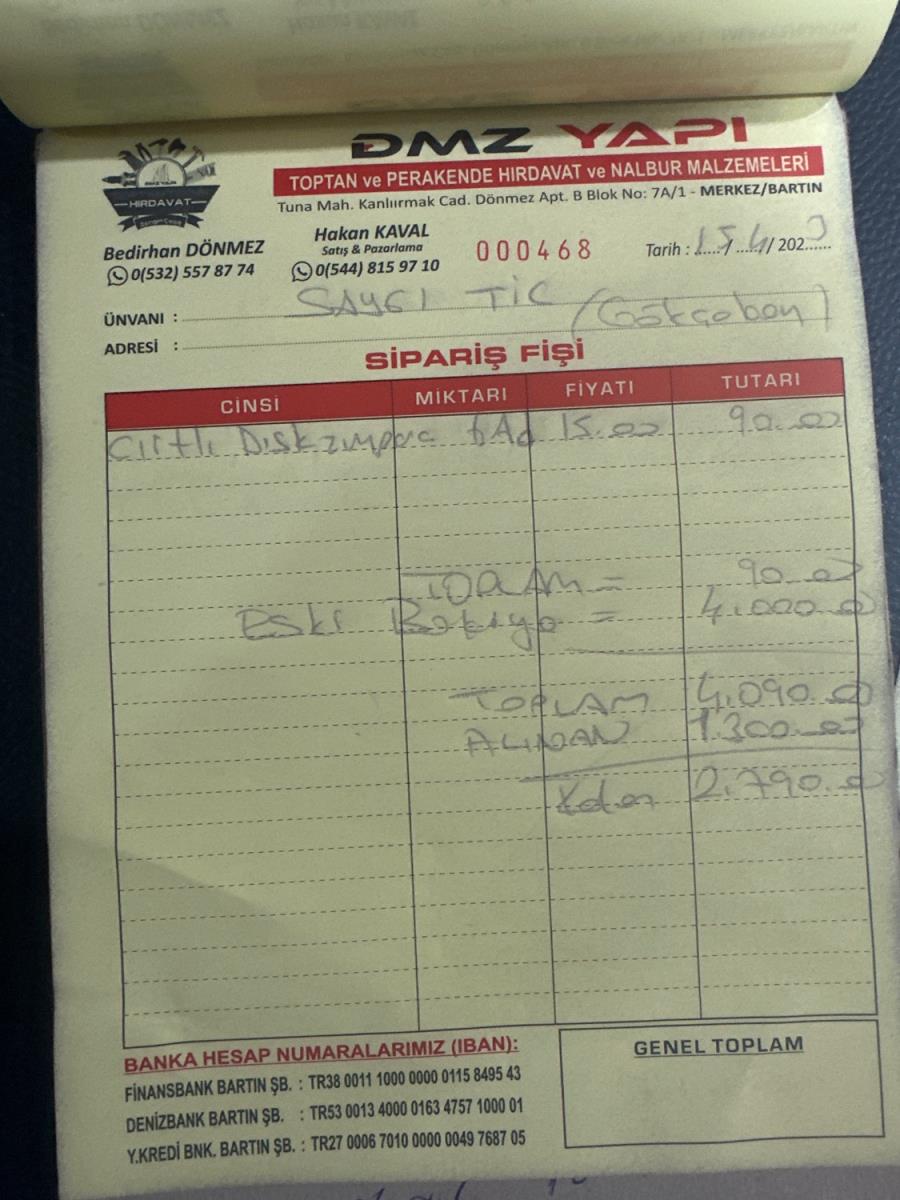 DMZ YAPI
TOPTAN ve PERAKENDE HIRDAVAT ve NALBUR MALZEMELERİ
Tuna Mah. Kanlıırmak Cad. Dönmez Apt. B Blok No: 7A/1 - MERKEZ/BARTIN
DMZ YAPI
HIRDAVAT
Bedirhan DÖNMEZ
0(532) 557 87 74
Hakan KAVAL
Satış & Pazarlama
0(544) 815 97 10
000468
Tarih : 15/4/2023
ÜNVANI : SAYGI TİC
ADRESİ : (Gökçebey)
SİPARİŞ FİŞİ
CİNSİ MİKTARI FİYATI TUTARI
Cırtlı Disk zımpara 6 Ad 15.00 90.00
TOPLAM = 90.00
Eski Bakiye = 4.000.00
TOPLAM 4.090.00
ALINAN 1.300.00
Kalan 2.790.00
BANKA HESAP NUMARALARIMIZ (IBAN):
FİNANSBANK BARTIN ŞB. : TR38 0011 1000 0000 0115 8495 43
DENİZBANK BARTIN ŞB. : TR53 0013 4000 0163 4757 1000 01
Y.KREDİ BNK. BARTIN ŞB. : TR27 0006 7010 0000 0049 7687 05
GENEL TOPLAM